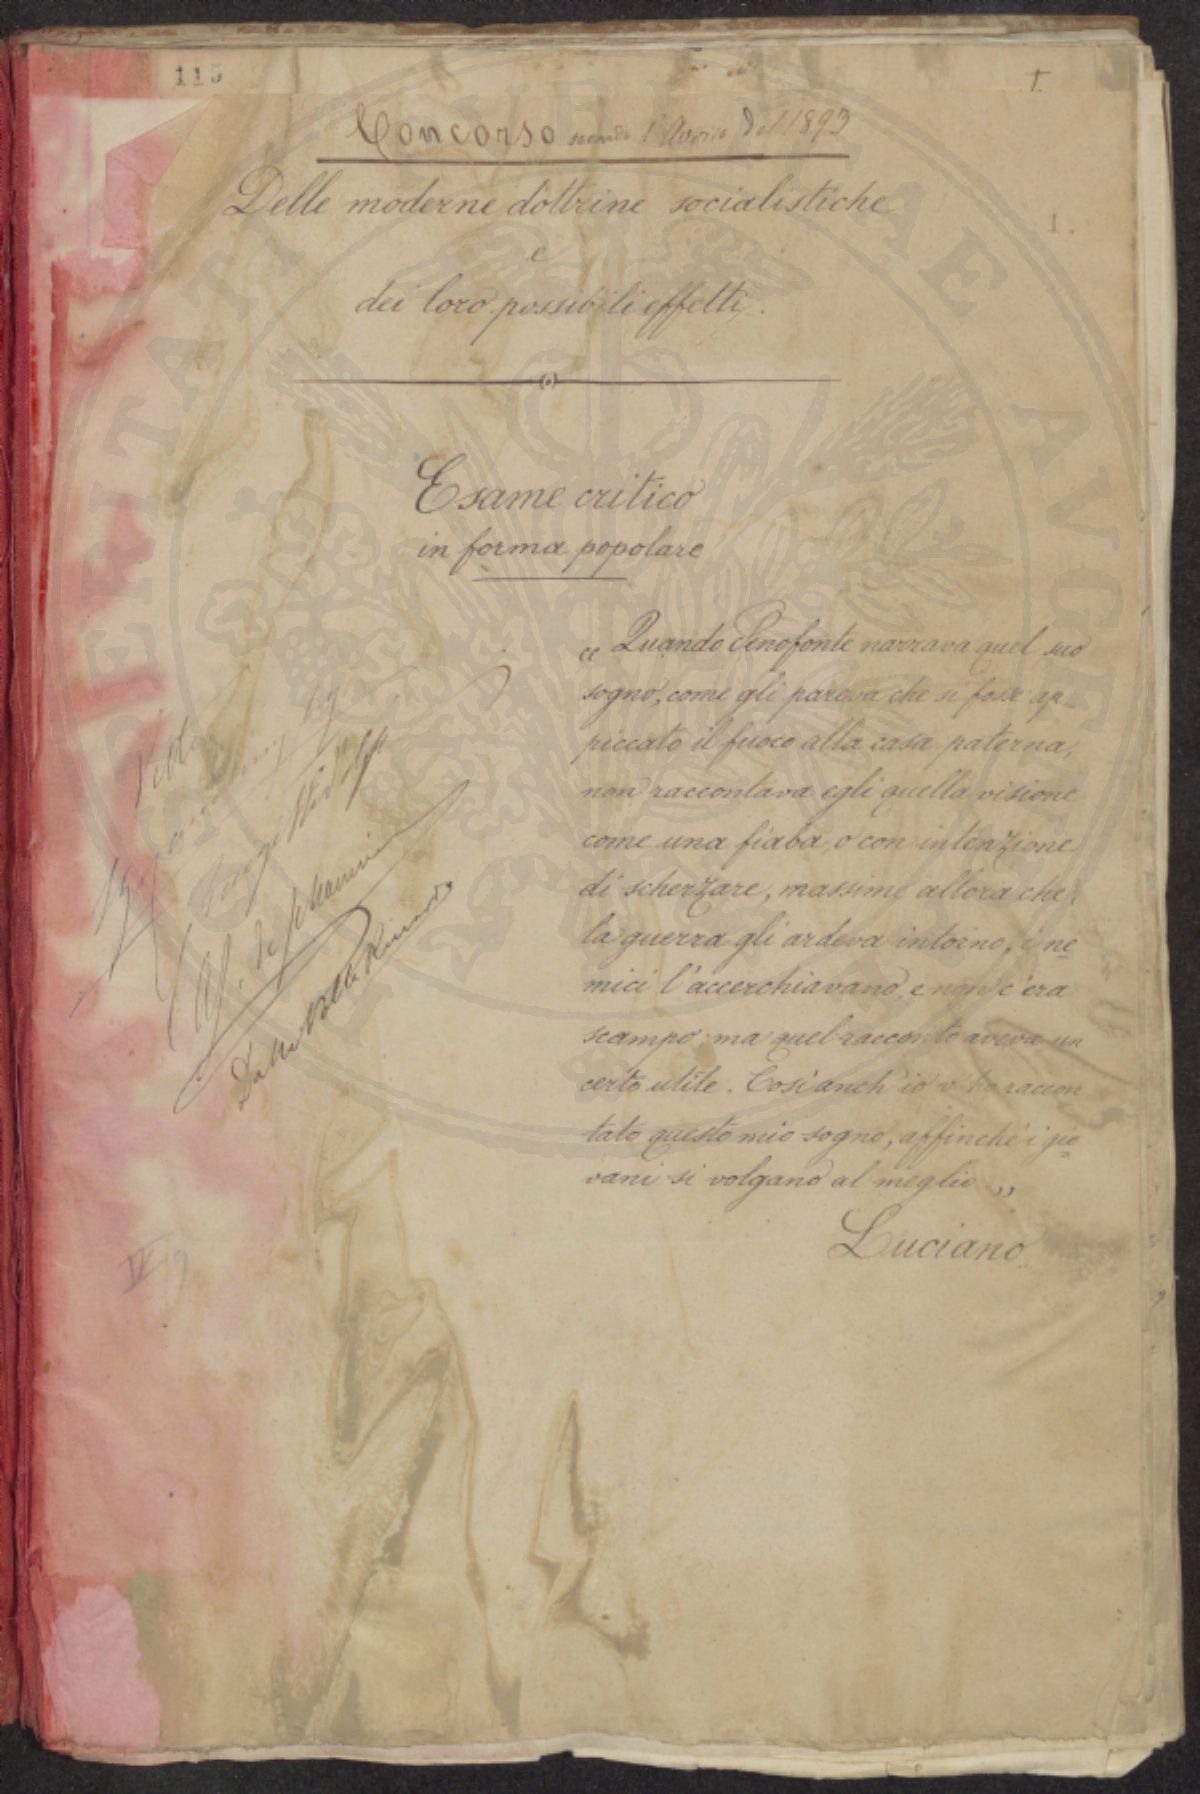 115
1
Concorso secondo l'Avviso del 1893
Delle moderne dottrine socialistiche
1.
e
dei loro possibili effetti.
Esame critico
in forma popolare
„ Quando Senofonte narrava quel suo
sogno, come gli pareva che si fosse ap-
piccato il fuoco alla casa paterna,
non raccontava egli quella visione
come una fiaba, o con intenzione
di scherzare, massime allora che
la guerra gli ardeva intorno, i ne-
mici l'accerchiavano, e non c'era
scampo; ma quel racconto aveva un
certo utile. Così anch'io v'ho raccon
tato questo mio sogno, affinchè i gio-
vani si volgano al meglio „
Luciano
IV 9